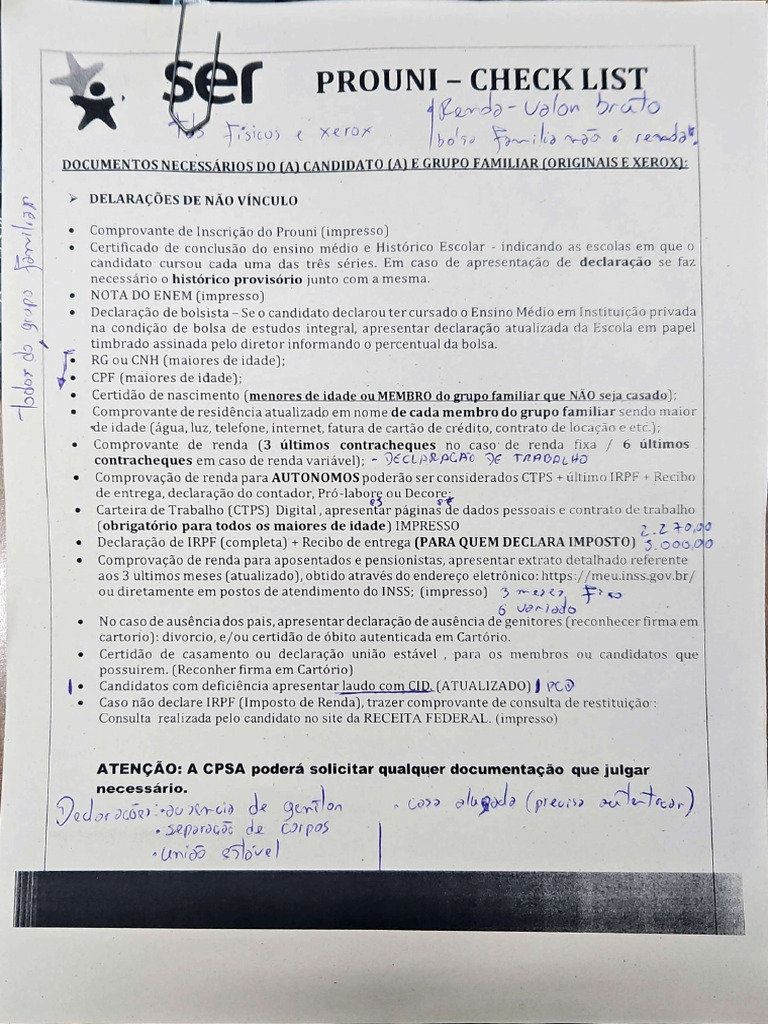 ser
PROUNI – CHECK LIST
Renda - valor bruto
físicos e xerox
bolsa família não é renda.
DOCUMENTOS NECESSÁRIOS DO (A) CANDIDATO (A) E GRUPO FAMILIAR (ORIGINAIS E XEROX):
Todos do grupo familiar
➢ DELARAÇÕES DE NÃO VÍNCULO
• Comprovante de Inscrição do Prouni (impresso)
• Certificado de conclusão do ensino médio e Histórico Escolar - indicando as escolas em que o
candidato cursou cada uma das três séries. Em caso de apresentação de declaração se faz
necessário o histórico provisório junto com a mesma.
• NOTA DO ENEM (impresso)
• Declaração de bolsista – Se o candidato declarou ter cursado o Ensino Médio em Instituição privada
na condição de bolsa de estudos integral, apresentar declaração atualizada da Escola em papel
timbrado assinada pelo diretor informando o percentual da bolsa.
• RG ou CNH (maiores de idade);
• CPF (maiores de idade);
• Certidão de nascimento (menores de idade ou MEMBRO do grupo familiar que NÃO seja casado);
• Comprovante de residência atualizado em nome de cada membro do grupo familiar sendo maior
de idade (água, luz, telefone, internet, fatura de cartão de crédito, contrato de locação e etc.);
• Comprovante de renda (3 últimos contracheques no caso de renda fixa / 6 últimos
contracheques em caso de renda variável); - DECLARAÇÃO DE TRABALHO
• Comprovação de renda para AUTONOMOS poderão ser considerados CTPS + último IRPF + Recibo
de entrega, declaração do contador, Pró-labore ou Decore;
• Carteira de Trabalho (CTPS) Digital , apresentar páginas de dados pessoais e contrato de trabalho
(obrigatório para todos os maiores de idade) IMPRESSO
2.270,00
• Declaração de IRPF (completa) + Recibo de entrega (PARA QUEM DECLARA IMPOSTO) 3.000,00
• Comprovação de renda para aposentados e pensionistas, apresentar extrato detalhado referente
aos 3 ultimos meses (atualizado), obtido através do endereço eletrônico: https://meu.inss.gov.br/
ou diretamente em postos de atendimento do INSS; (impresso) 3 meses fixo
6 variado
• No caso de ausência dos pais, apresentar declaração de ausência de genitores (reconhecer firma em
cartorio): divorcio, e/ou certidão de óbito autenticada em Cartório.
• Certidão de casamento ou declaração união estável , para os membros ou candidatos que
possuirem. (Reconher firma em Cartório)
• Candidatos com deficiência apresentar laudo com CID. (ATUALIZADO) PCD
• Caso não declare IRPF (Imposto de Renda), trazer comprovante de consulta de restituição :
Consulta realizada pelo candidato no site da RECEITA FEDERAL. (impresso)
ATENÇÃO: A CPSA poderá solicitar qualquer documentação que julgar
necessário.
Declarações: • ausência de genitor
• separação de corpos
• união estável
• casa alugada (precisa autenticar)